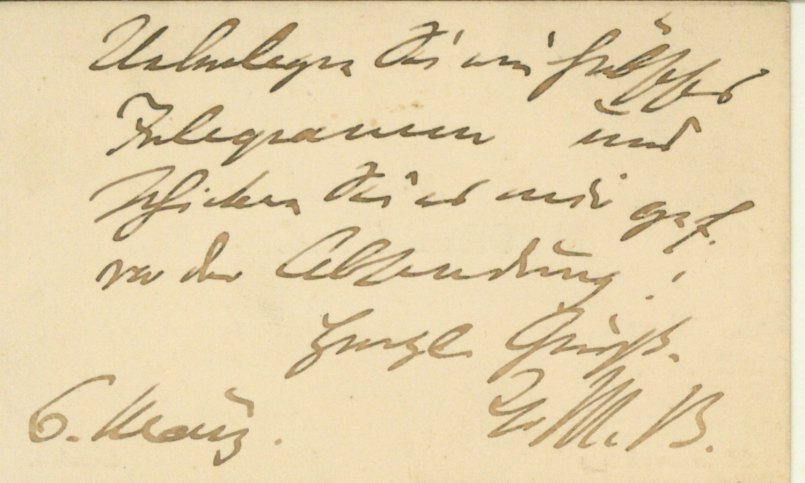 Ueberlegen Sie ein
Telegramm und
schicken Sie es mir gef.
vor der Absendung!
Herzl. Gruß.
Ihr M. B.
6. März.